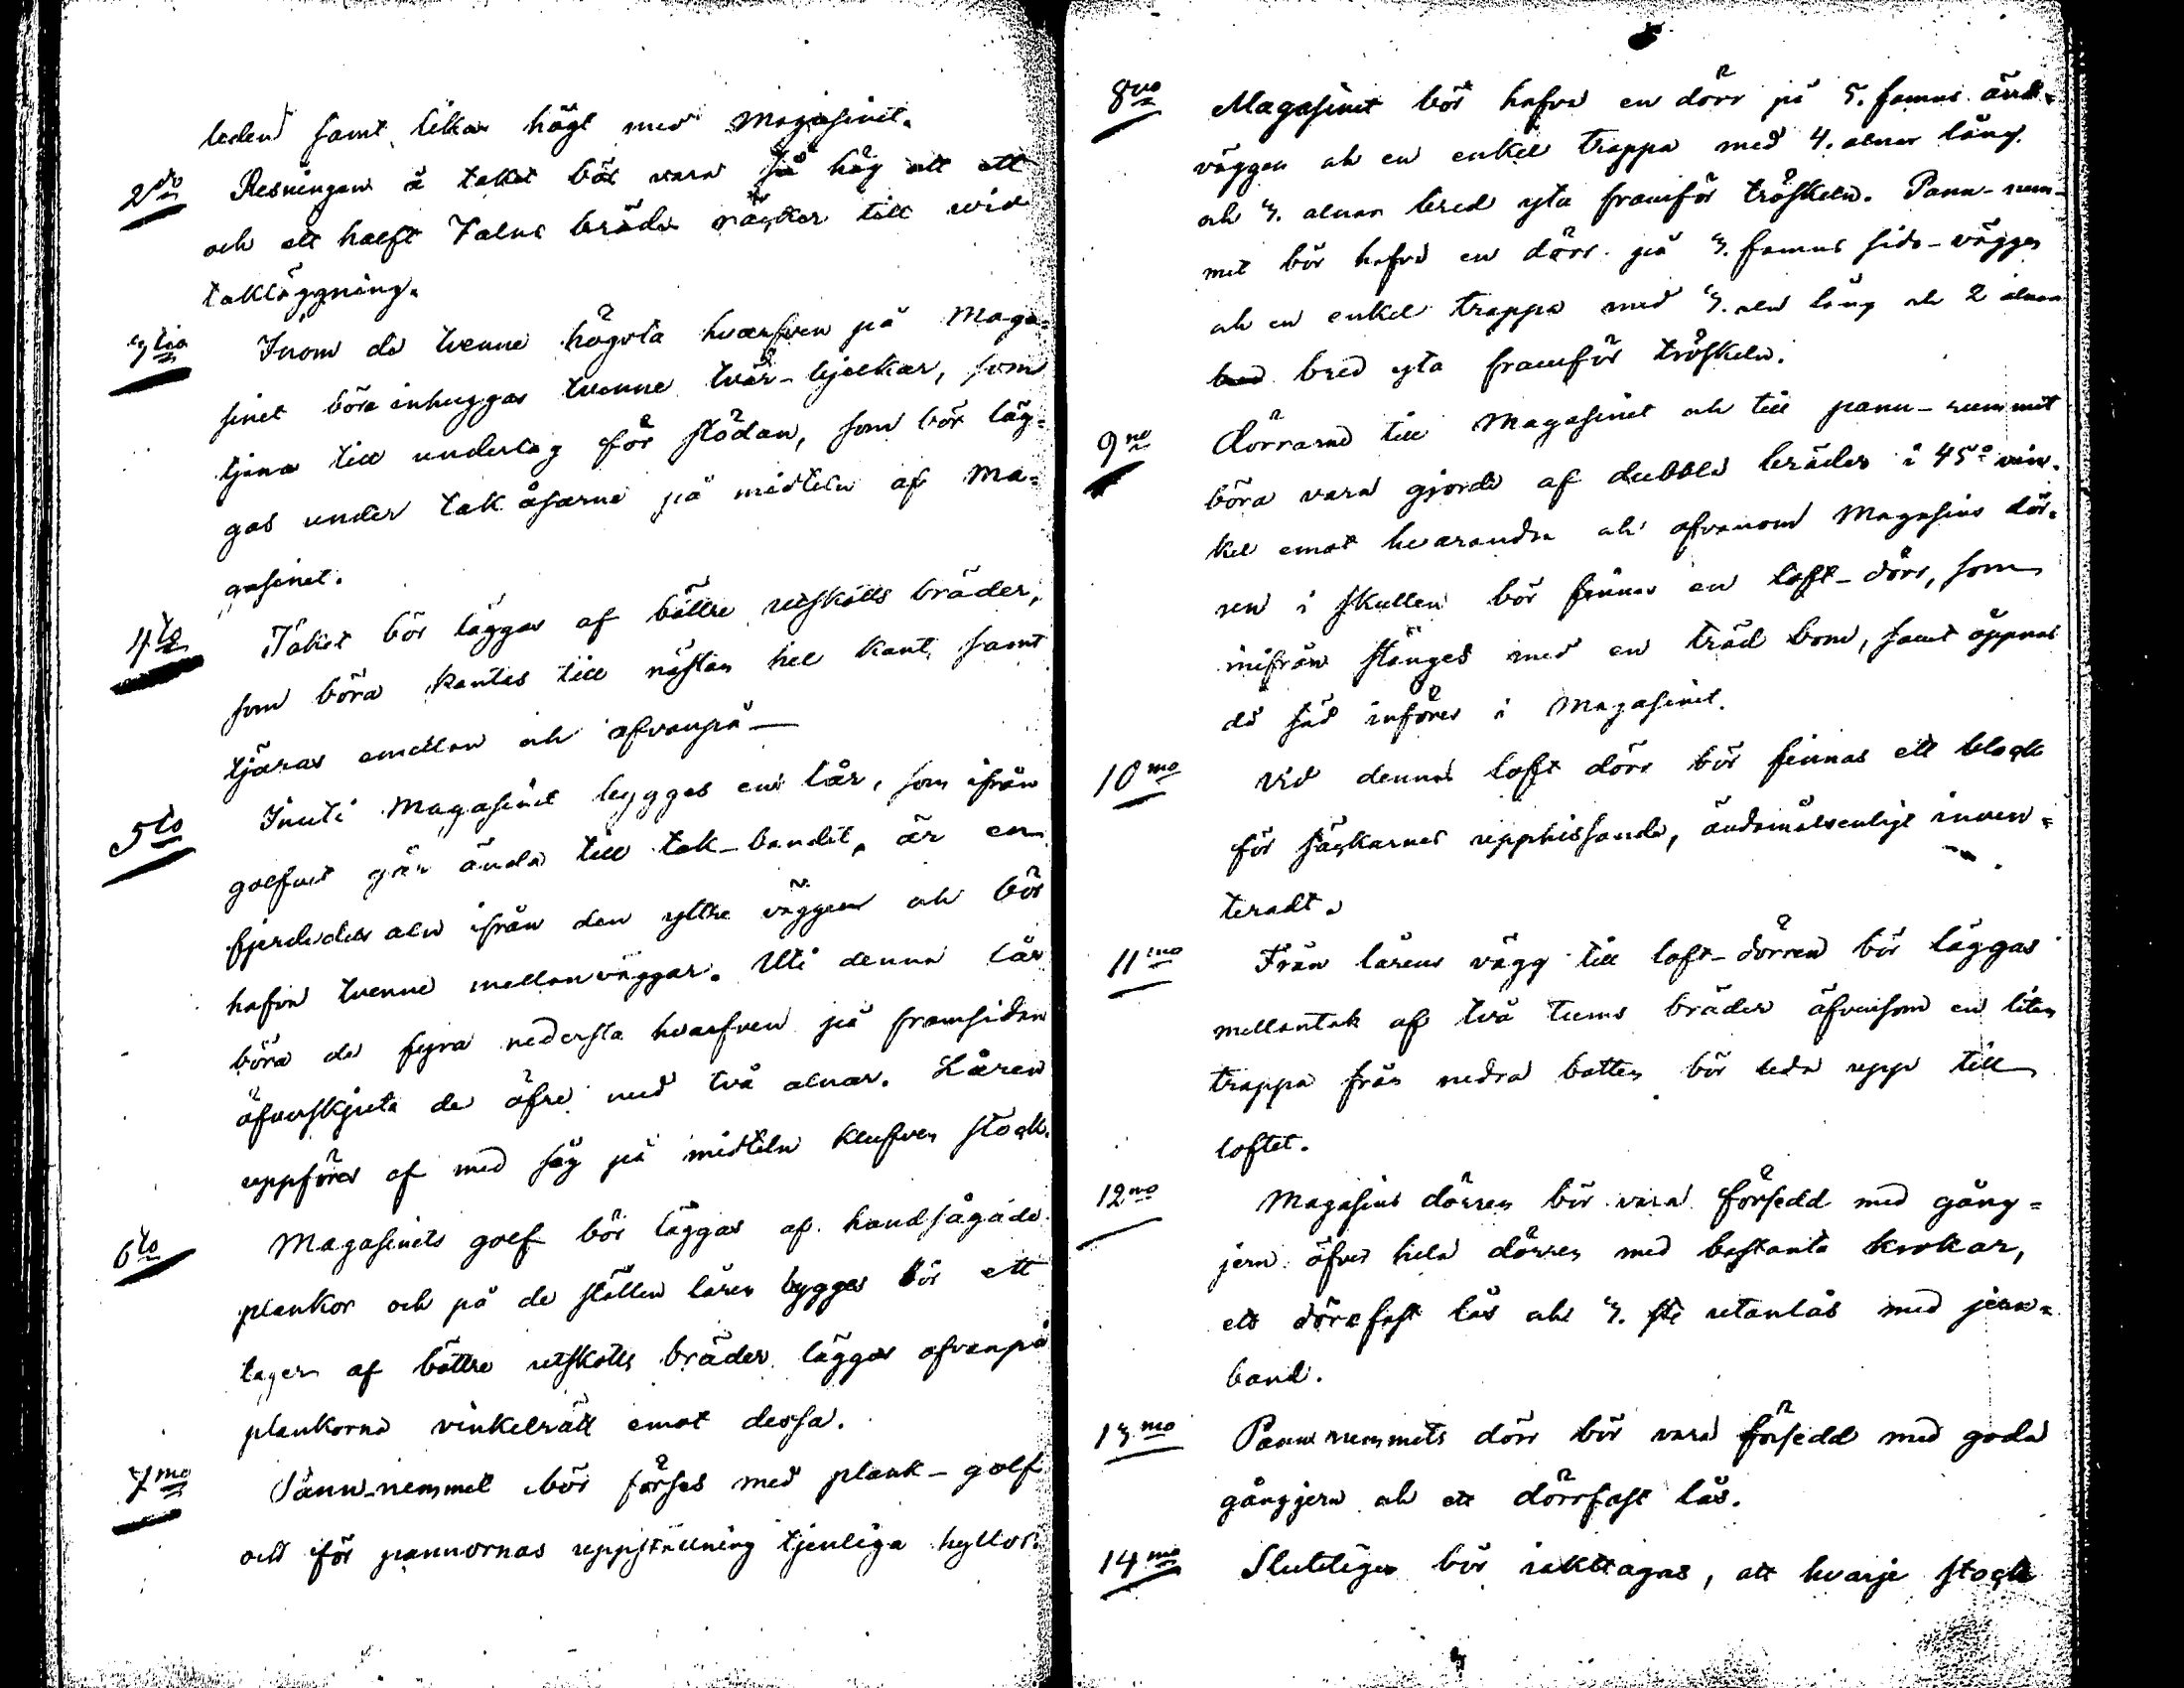 leden samt lika högt med Magasinet.
2do Resningen å taket bör vara så hög att ett
och ett halft 7 alns bräde räcker till wid
takläggning.
3tio Inom de tvenne högsta hvarfven på Maga=
sinet böra inhuggas tvenne tvär-bjelkar, som
tjena till underlag för stödan, som bör läg=
gas under tak åsarne på midteln af Ma=
gasinet.
4to Taket bör läggas af bättre utskotts bräder,
som böra kantas till nästan hel kant, samt
tjäras emellan och ofvanpå—
5to Inuti Magasinet bygges en lår, som ifrån
golfvet går ända till tak-bandet, är en
fjerdedels aln ifrån den yttre väggen och bör
hafva tvenne mellanväggar. Uti denna lår
böra de fyra nedersta hvarfven på framsidan
öfverskjuta de öfre med två alnar. Låren
uppföres af med såg på midteln klufven stock.
6to Magasinets golf bör läggas af handsågade
plankor och på de ställen låren bygges bör ett
lager af bättre utskotts bräder läggas ofvanpå
plankorna vinkelrätt emot dessa.
7mo Pann-rummet bör förses med plank-golf
och för pannornas uppställning tjenliga hyllor.
8vo Magasinet bör hafva en dörr på 5. famns änd=
väggen och en enkel trappa med 4. alnar lång
och 3. alnar bred yta framför tröskeln. Pann-rum-
met bör hafva en dörr på 3. famns sido-väggen
och en enkel trappa med 3. aln lång och 2 alnar
bred yta framför tröskeln.
9no Dörrarne till Magasinet och till pann-rummet
böra vara gjorde af dubbla bräder i 45° vin=
kel emot hvarandra och ofvanom Magasins dör=
ren i skullen bör finnas en loft-dörr, som
inifrån stänges med en träd bom, samt öppnas
då säd införes i Magasinet.
10mo Vid denna loft dörr bör finnas ett block
för säckarnes upphissande, ändamålsenligt inven=
teradt.
11mo Från lårens vägg till loft-dörren bör läggas
mellantak af två tums bräder äfvensom en liten
trappa från nedra botten bör leda upp till
loftet.
12mo Magasins dörren bör vara försedd med gång=
jern öfver hela dörren med bastanta krokar,
ett dörrfast lås och 3. st utanlås med jern=
band.
13mo Pann rummets dörr bör vara försedd med goda
gångjern och ett dörrfast lås.
14mo Slutligen bör iakttagas, att hvarje stock